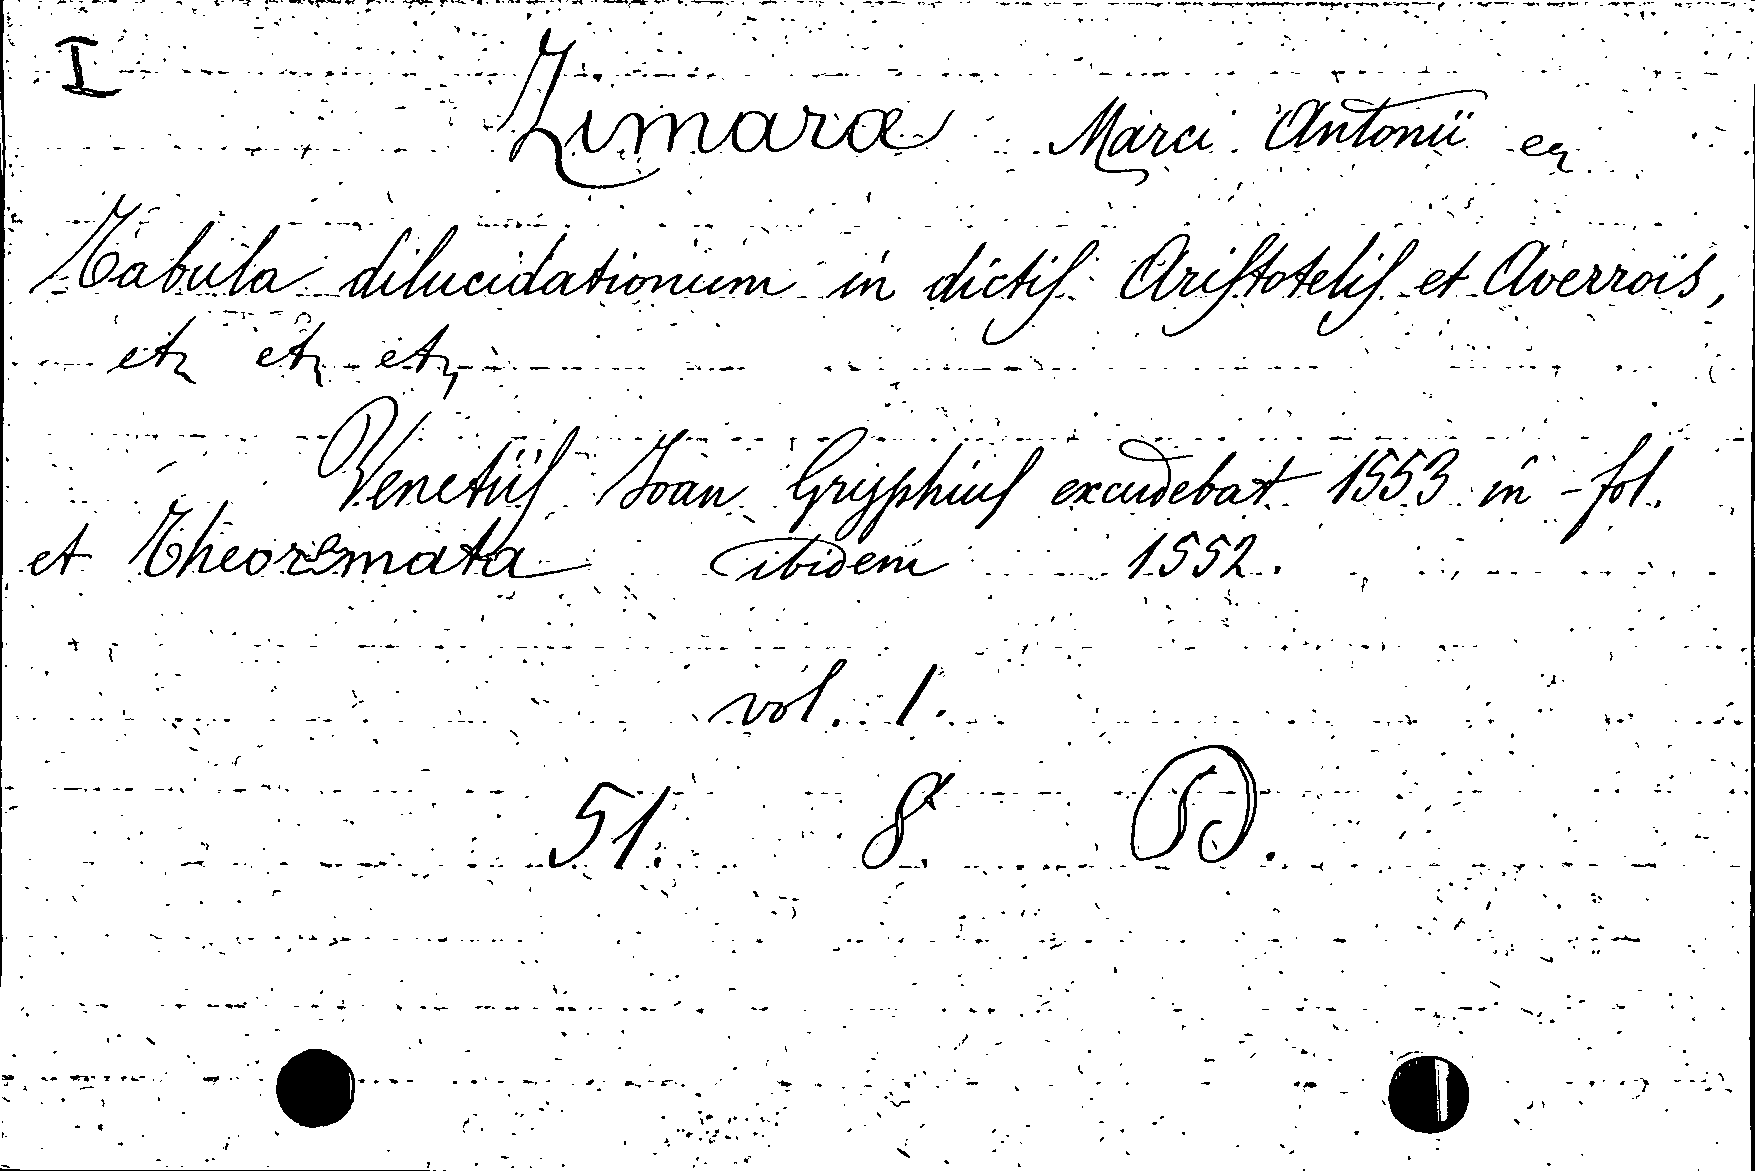 I
Zimaræ Marci Antonii
Tabula dilucidationum in dictiſ Ariſtoteliſ et Averrois,
etz etz etz,
Venetiiſ Ioan Gryphiuſ excudebat 1553 in - fol.
et Theoremata ibidem 1552.
vol. 1.
51. 8. D.